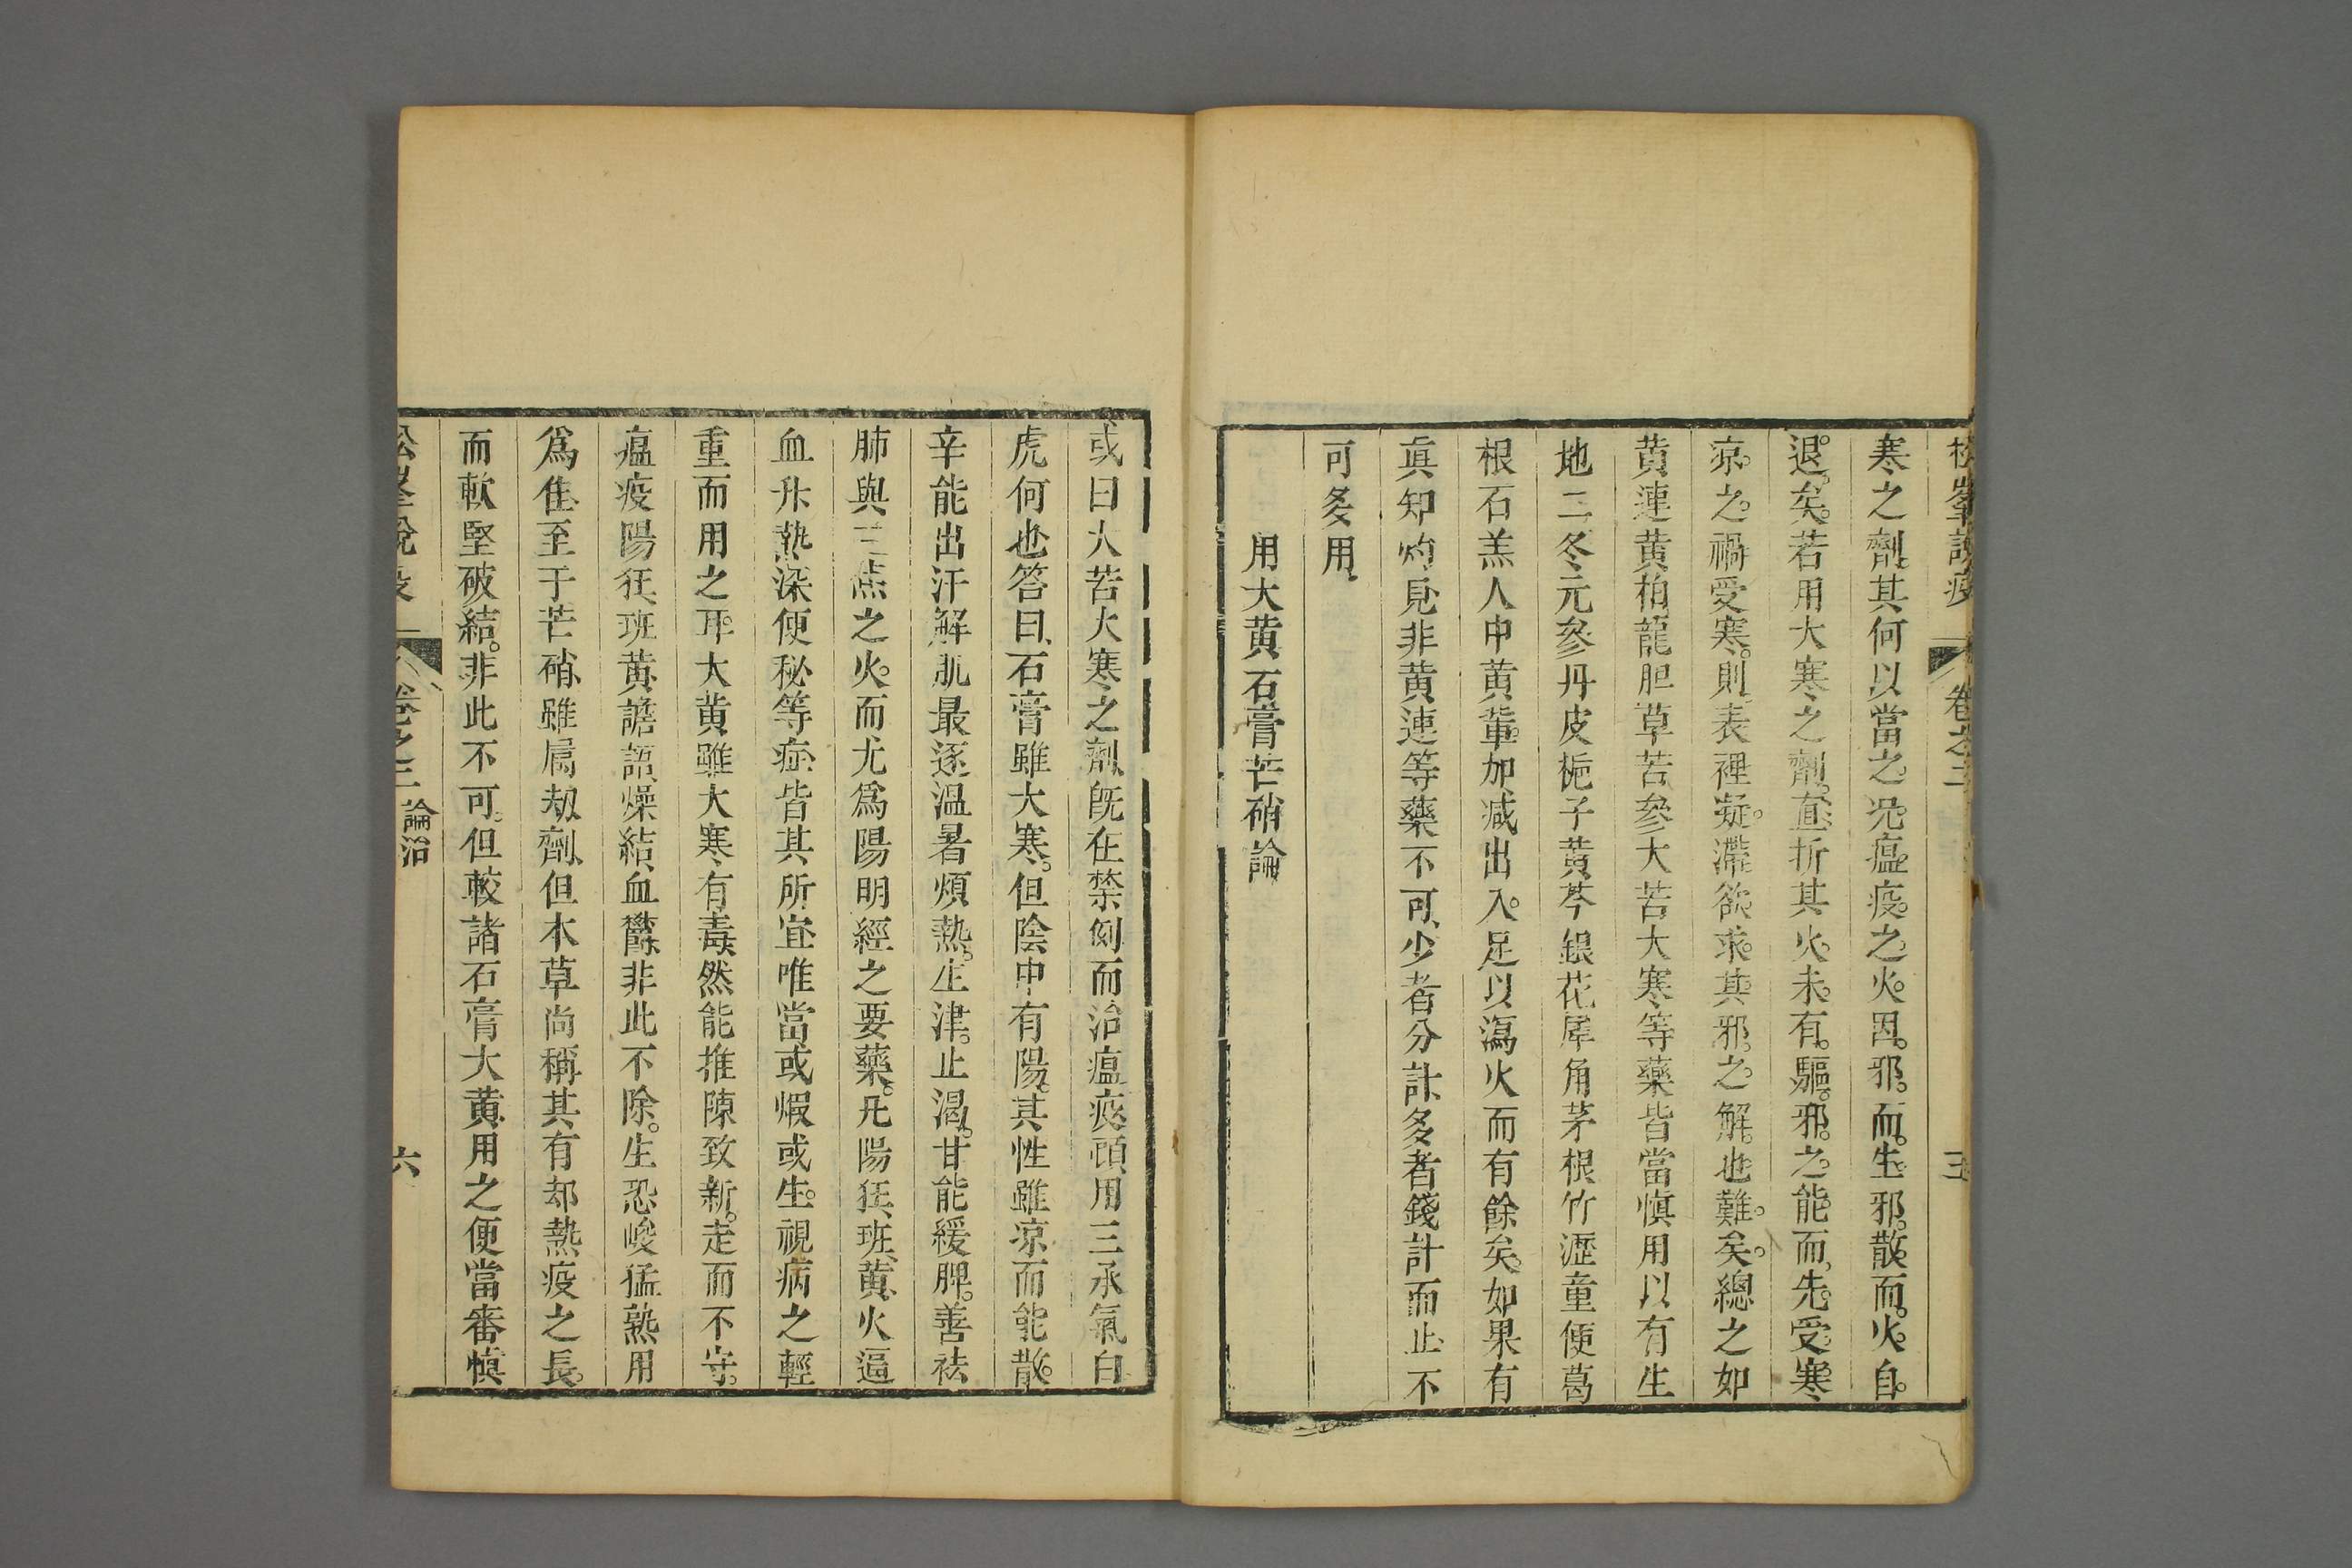 松峯說疫 卷之二 五
寒之劑其何以當之況瘟疫之火因邪而生邪散而火自
退矣若用大寒之劑直折其火未有驅邪之能而先受寒
涼之禍受寒則表裡凝滯欲求其邪之解也難矣總之如
黃連黃柏龍胆草苦參大苦大寒等藥皆當慎用以有生
地二冬元參丹皮梔子黃芩銀花犀角茅根竹瀝童便葛
根石羔人中黃輩加减出入足以瀉火而有餘矣如果有
真知灼見非黃連等藥不可少者分計多者錢計而止不
可多用
用大黃石膏芒硝論
或曰大苦大寒之劑既在禁例而治瘟疫頭用三承氣白
虎何也答曰石膏雖大寒但陰中有陽其性雖凉而能散
辛能出汗解肌最逐温暑煩熱生津止渴甘能緩脾善祛
肺與三焦之火而尤爲陽明經之要藥凡陽狂班黃火逼
血升熱深便秘等症皆其所宜唯當或煆或生視病之輕
重而用之耳大黃雖大寒有毒然能推陳致新走而不守
瘟疫陽狂班黃譫語燥結血鬱非此不除生恐峻猛熟用
爲佳至于芒硝雖屬劫劑但本草尚稱其有却熱疫之長
而軟堅破結非此不可但較諸石膏大黃用之便當審慎
松峯說疫 卷之二 論治 六